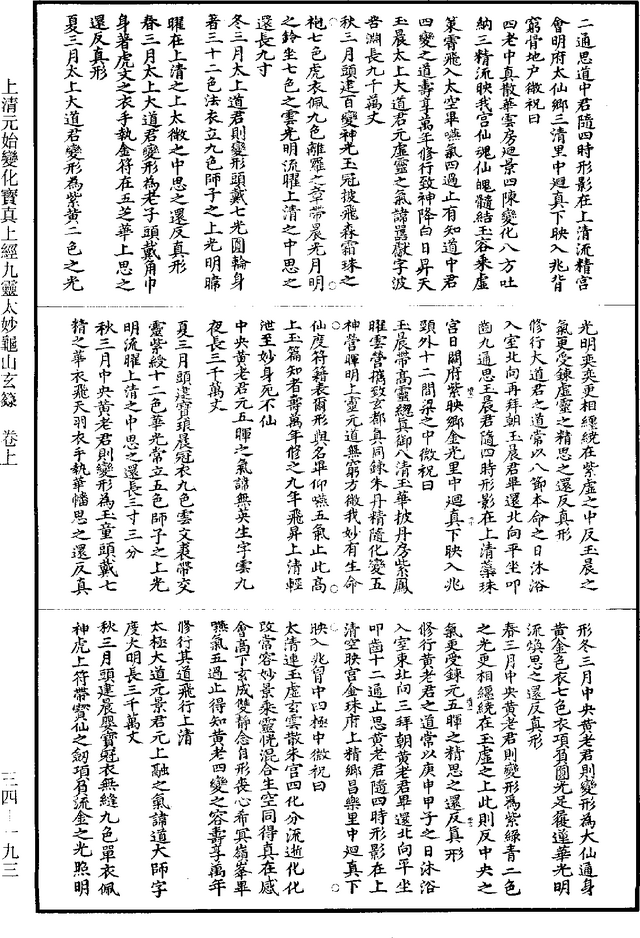 二通思道中君隨四時形影在上清流精宮
會明府太仙鄉三清里中迴真下映入兆背
窮骨地戶微祝曰
四老中真散華雲房迴景四陳變化八方吐
納三精流映我宮仙魂仙魄髓結玉容乘虛
策霄飛入太空畢嚥氣四過止有知道中君
四變之道壽享萬年修行致神降白日昇天
玉晨太上大道君元虛靈之氣諱 獄字波
音淵長九千萬丈
秋三月頭建百變神光玉冠披飛森霜珠之
袍七色虎衣佩九色離羅之章帶晨光月明
之鈴坐七色之雲光明流曜上清之中思之
還長九寸
冬三月太上道君則變形頭戴七光圓輪身
著三十二色法衣立九色師子之上光明 
曜在上清之上太微之中思之還反真形
春三月太上大道君變形為老子頭戴角巾
身著虎文之衣手執金符在五芝華上思之
還反真形
夏三月太上大道君變形為紫黃二色之光
光明奕奕更相纏繞在紫虛之中反玉晨之
氣更受鍊虛靈之精思之還反真形
修行大道君之道常以八節本命之日沐浴
入室北向再拜朝玉晨君畢還北向平坐叩
齒九通思玉晨君隨四時形影在上清蘂珠
宮日闕府紫映鄉金光里中迴真下映入兆
頸外十二間梁之中微祝曰
玉晨帶高靈總真御八清玉華披丹房紫鳳
曜雲營攜致玄都真同鍊朱丹精隨化變五
神營暉明上靈元道無窮方微我妙有生命
仙度符籍表爾形與名畢仰嚥五氣止此高
上玉篇知者壽萬年修之九年飛昇上清輕
泄至妙身死不仙
中央黃老君元五暉之氣諱無英生字雲九
夜長三千萬丈
夏三月頭建寶琅晨冠衣九色雲文裘帶交
靈紫綬十二色華光常立五色師子之上光
明流曜上清之中思之還長三寸三分
秋三月中央黃老君則變形為玉童頭戴七
精之華衣飛天羽衣手執華幡思之還反真
形冬三月中央黃老君則變形為大仙通身
黃金色衣七色衣項負圓光足履蓮華光明
流煥思之還反真形
春三月中央黃老君則變形為紫綠青二色
之光更相纏繞在玉虛之上此則反中央之
氣更受鍊元五暉之精思之還反真形
修行黃老君之道常以庚申甲子之日沐浴
入室東北向三拜朝黃老君畢還北向平坐
叩齒十二通止思黃老君隨四時形影在上
清空映宮金珠府上精鄉昌樂里中迴真下
映入兆胷中四極中微祝曰
太清連玉虛玄雲散朱宮四化分流逝化化
改常容妙景乘靈恍混合生空同得真在感
會高下玄成雙靜念自形喪心希冥嶺峯畢
嚥氣五過止得知黃老四變之容壽享萬年
修行其道飛行上清
太極大道元景君元上融之氣諱道大師字
度大明長三千萬丈
秋三月頭建晨嬰寶冠衣無縫九色單衣佩
神虎上符帶寶仙之劒項負流金之光照明
上清元始變化寶真上經九靈太妙龜山玄籙　卷上
三四－一九三